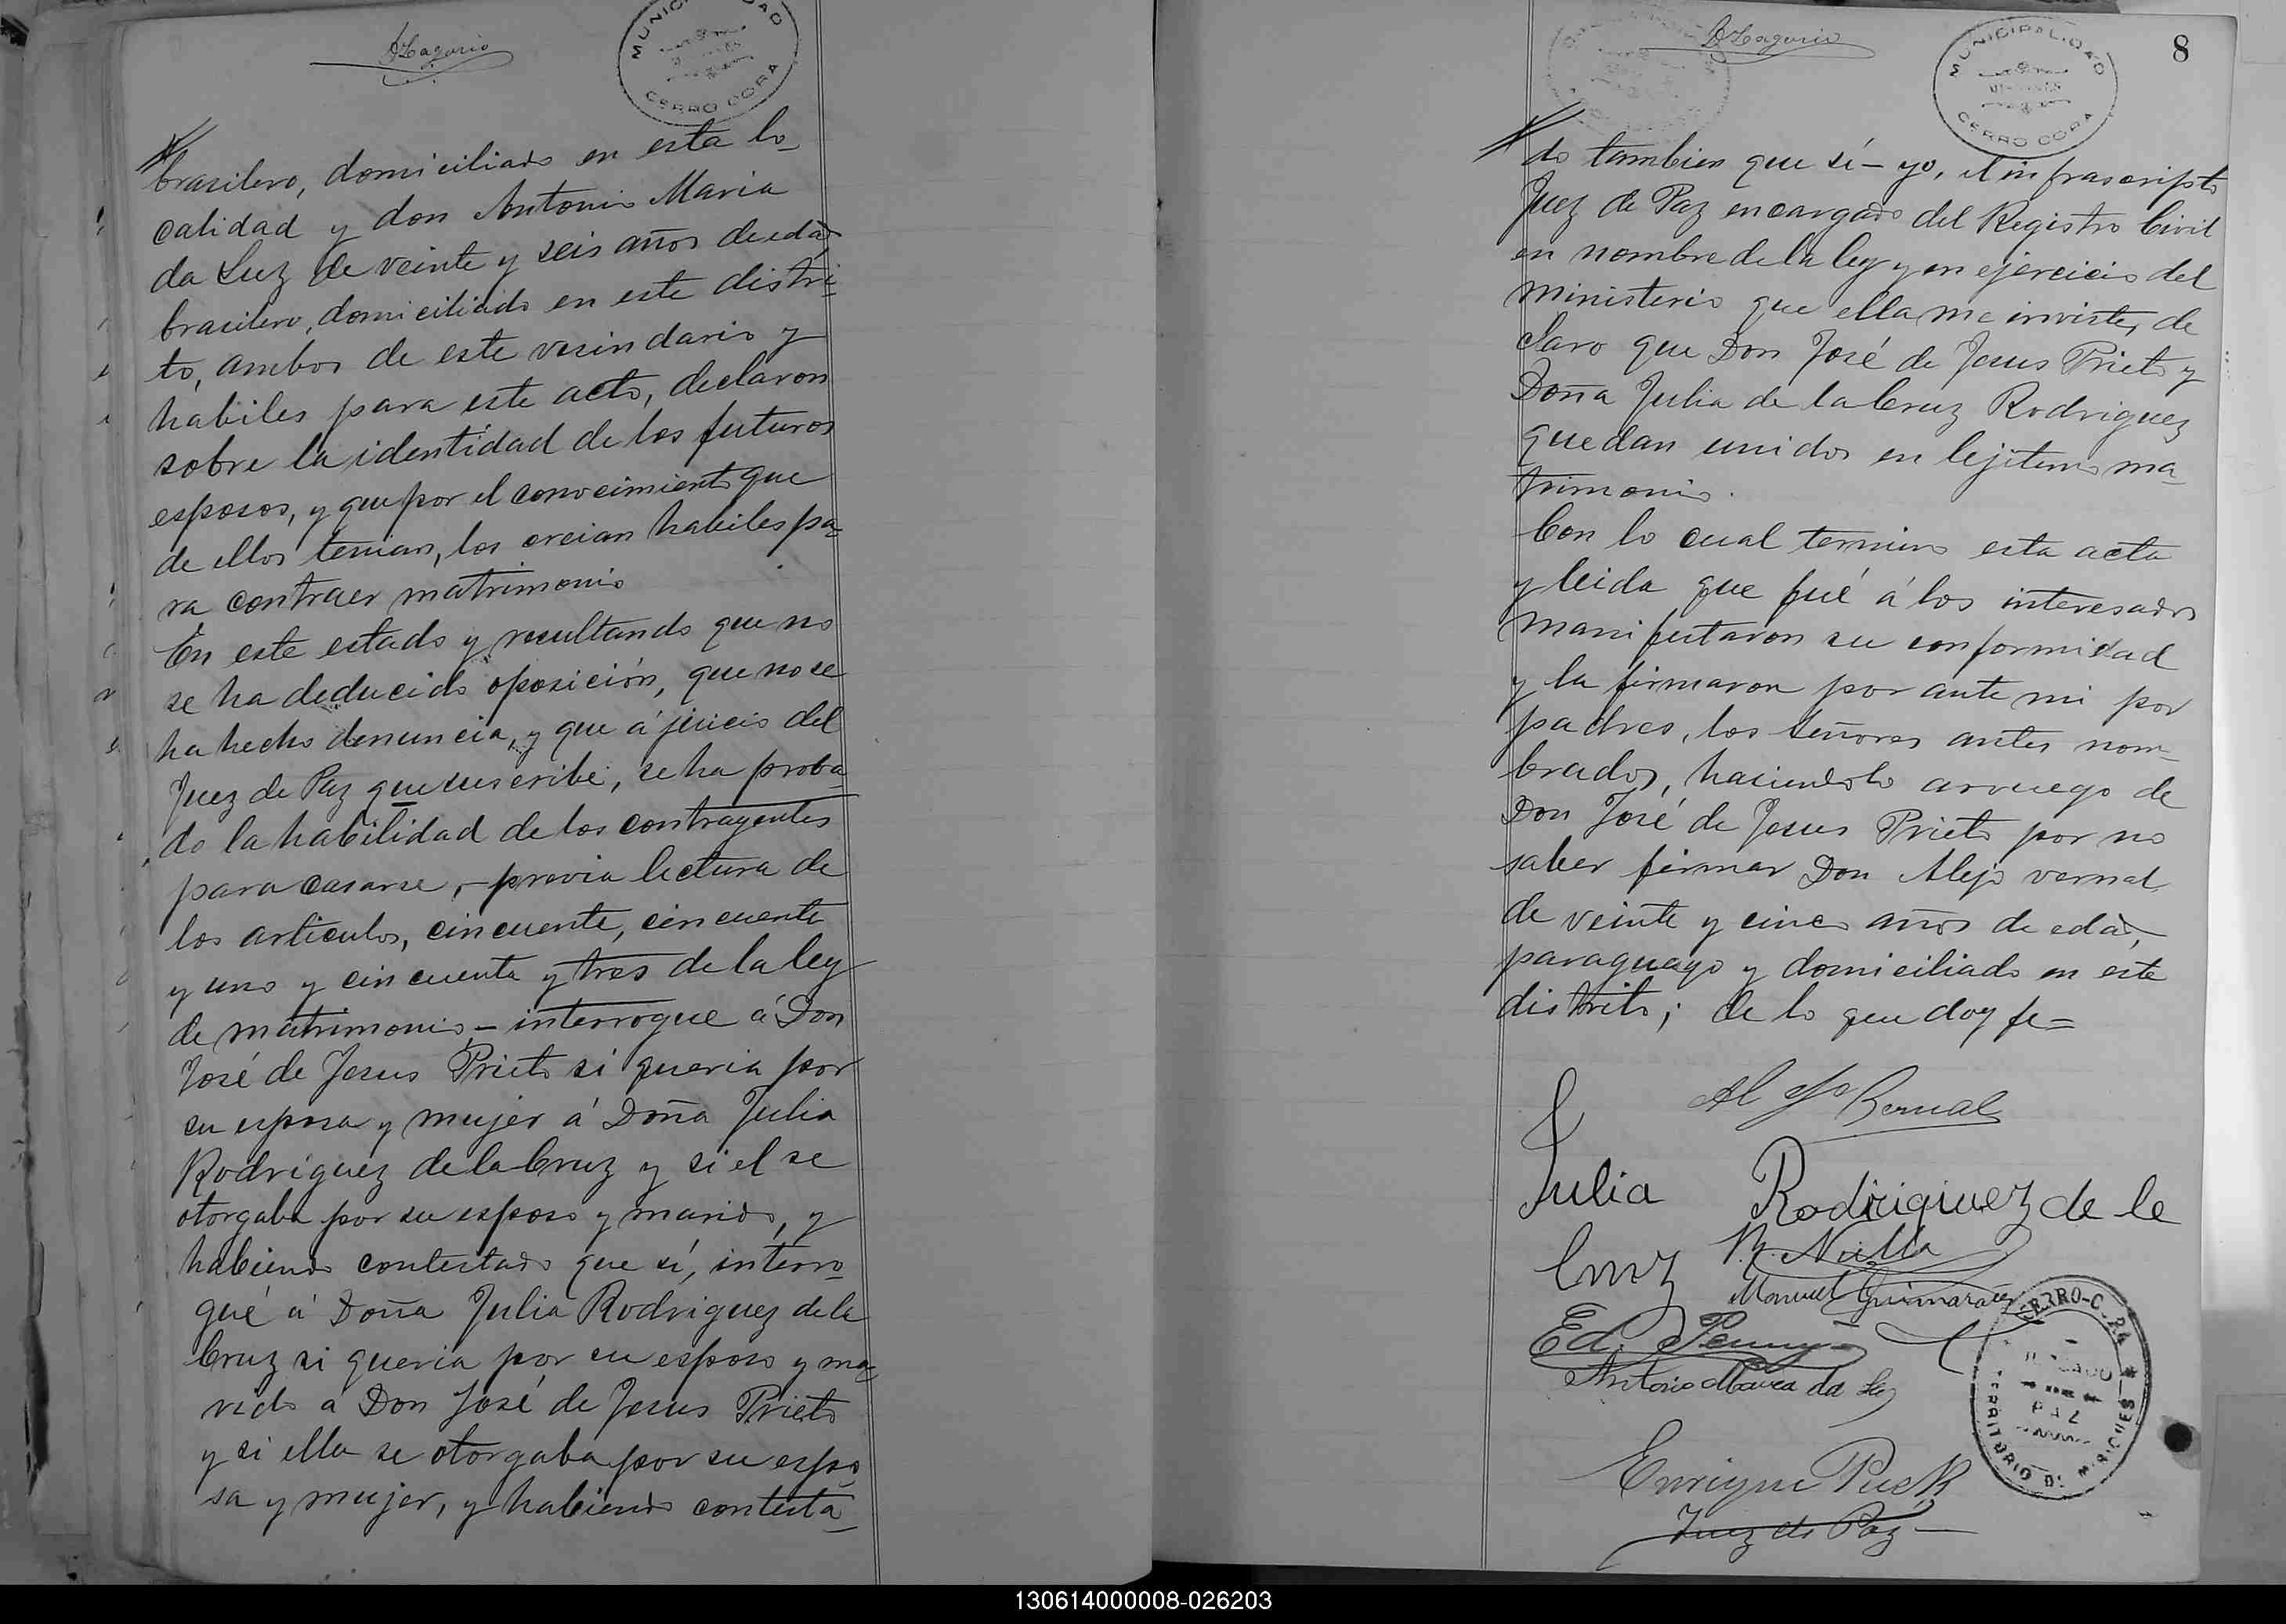 MUNICIPALIDAD
CERRO CORA
brasilero, domiciliado en esta lo-
calidad y don Antonio Maria
da Luz de veinte y seis años de edad
brasilero, domiciliado en este distri-
to, ambos de este vesindario y
habiles para este acto, declaron
sobre la identidad de los futuros
esposos, y que por el conocimiento que
de ellos tenian, los creian habiles pa-
ra contraer matrimonio
En este estado y resultando que no
se ha deducido oposición, que no se
ha hecho denuncia, y que á juicio del
Juez de Paz que suscribe, se ha proba-
do la habilidad de los contrayentes
para casarse, - previa lectura de
los articulos, cincuente, cincuente
y uno y cincuenta y tres de la ley
de matrimonio - interrogue á Don
José de Jesus Prieto si queria por
su esposa y mujer á Doña Julia
Rodriguez de la Cruz y si el se
otorgaba por su esposo y marido, y
habiendo contestado que sí, interro-
gué á Doña Julia Rodriguez de la
Cruz si queria por su esposo y ma-
rido a Don José de Jesus Prieto
y si ella se otorgaba por su espo-
sa y mujer, y habiendo contesta-
8
MUNICIPALIDAD
CERRO CORA
do tambien que sí - yo, el infrascripto
Juez de Paz encargado del Registro Civil
en nombre de la ley y en ejercicio del
ministerio que ella me inviste, de
claro que Don José de Jesus Prieto y
Doña Julia de la Cruz Rodriguez
quedan unidos en lejitimo ma-
trimonio.
Con lo cual termino esta acta
y leida que fué á los interesados
manifestaron su conformidad
y la firmaron por ante mi por
padres, los señores antes nom-
brados, haciendolo arruego de
Don José de Jesus Prieto por no
saber firmar Don Alejo vernal
de veinte y cinco años de edad,
paraguayo y domiciliado en este
distrito; de lo que doy fe=
Alejo Bernal
Julia Rodirigiuez de le
Cruz
Manuel Guimaraes
Ed.
Antonio Maria da Luz
CERRO-CORA
JUZGADO
DE
PAZ
TERRITORIO DE MISIONES
Enrique Puck
Juez de Paz
130614000008-026203